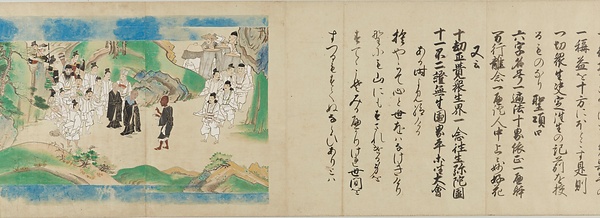 一稱益を十方にほどこす是則
一切衆生決定往生の記莂を授
るものなり 聖頌曰
六字名号一遍法十界依正一遍躰
万行離念一遍證人中上々妙好花
又云
十劫正覺衆生界一念往生弥陀國
十一不二證無生國界平等坐大會
ある時よみ給
捨やらて心と世をはなけきけり
野にも山にもすまれける身を
すてゝこそみるへかりけれ世間を
すつるもすてぬならひありとは